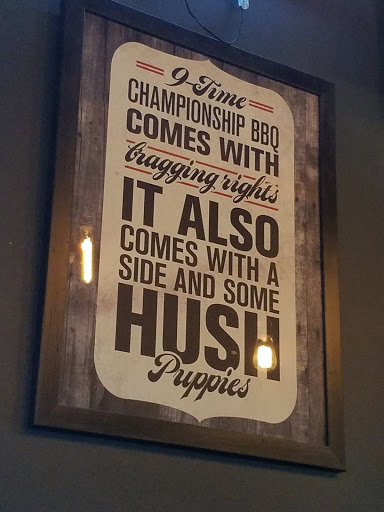 9-Time
CHAMPIONSHIP BBQ
COMES WITH
bragging rights
IT ALSO
COMES WITH A
SIDE AND SOME
HUSH
Puppies